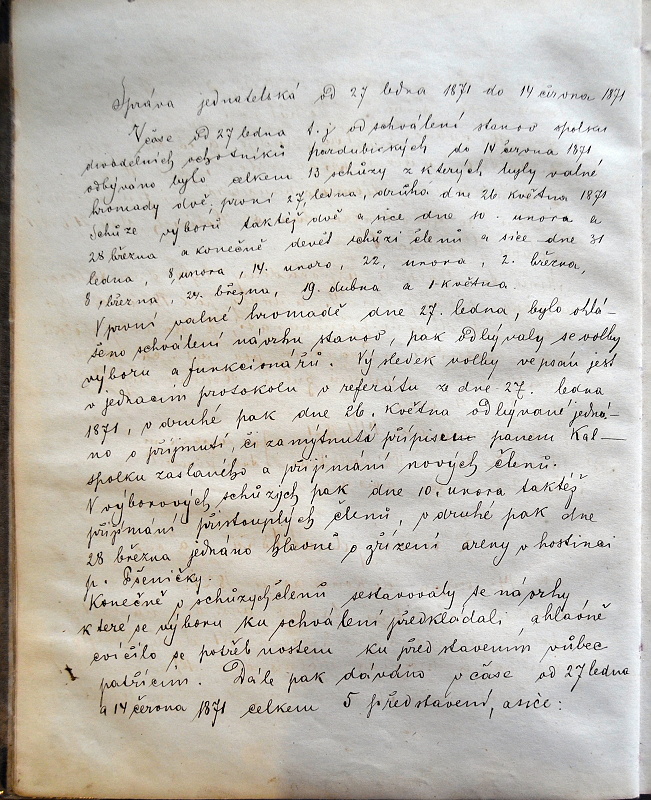 Správa jednatelská od 27 ledna 1871 do 14 června 1871
V čase od 27 ledna t. j od schválení stanov spolku
divadelních ochotníků pardubických do 14 června 1871
odbýváno bylo celkem 13 schůzy z kterých byly valné
hromady dvě, první 27, ledna, druhá dne 26. května 1871
Schůze výborů taktéž dvě a sice dne 10. unora a
28 března a konečně devět schůzí členů a sice dne 31
ledna, 8, unora, 14. unoro, 22, unora, 2. března,
8, března, 24. března, 19. dubna a 1. května.
V první valné hromadě dne 27. ledna, bylo ohlá-
šeno schválení návrhu stanov, pak odbývaly se volby
výboru a funkcionářů. Výsledek volby vepsán jest
v jednacím protokolu v referátu ze dne 27. ledna
1871, v druhé pak dne 26. května odbývané jedná-
no o příjmutí, či zamýtnutí přípisem panem Kal—
spolku zaslaného a přijímání nových členů.
V výborových schůzých pak dne 10. unora taktéž
přijímání přistouplých členů, v druhé pak dne
28 března jednáno hlavně o zřízení areny v hostinci
p. Pšeničky.
Konečně v schůzých členů sestavovály se návrhy
které se výboru ku schválení předkládali a hlavně
cvičilo se potřebnostem ku představením vůbec
patřícím. Dále pak dáváno v čase od 27 ledna
a 14 června 1871 celkem 5 představení, a sice: